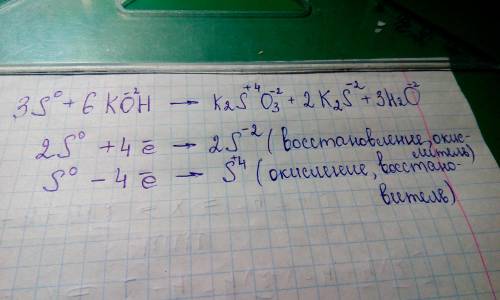 3S⁰ + 6KO⁻²H → K₂S⁺⁴O₃⁻² + 2K₂S⁻² + 3H₂O⁻²
2S⁰ + 4ē → 2S⁻² (восстановление, окис-
литель)
S⁰ − 4ē → S⁺⁴ (окисление, восстано-
витель)